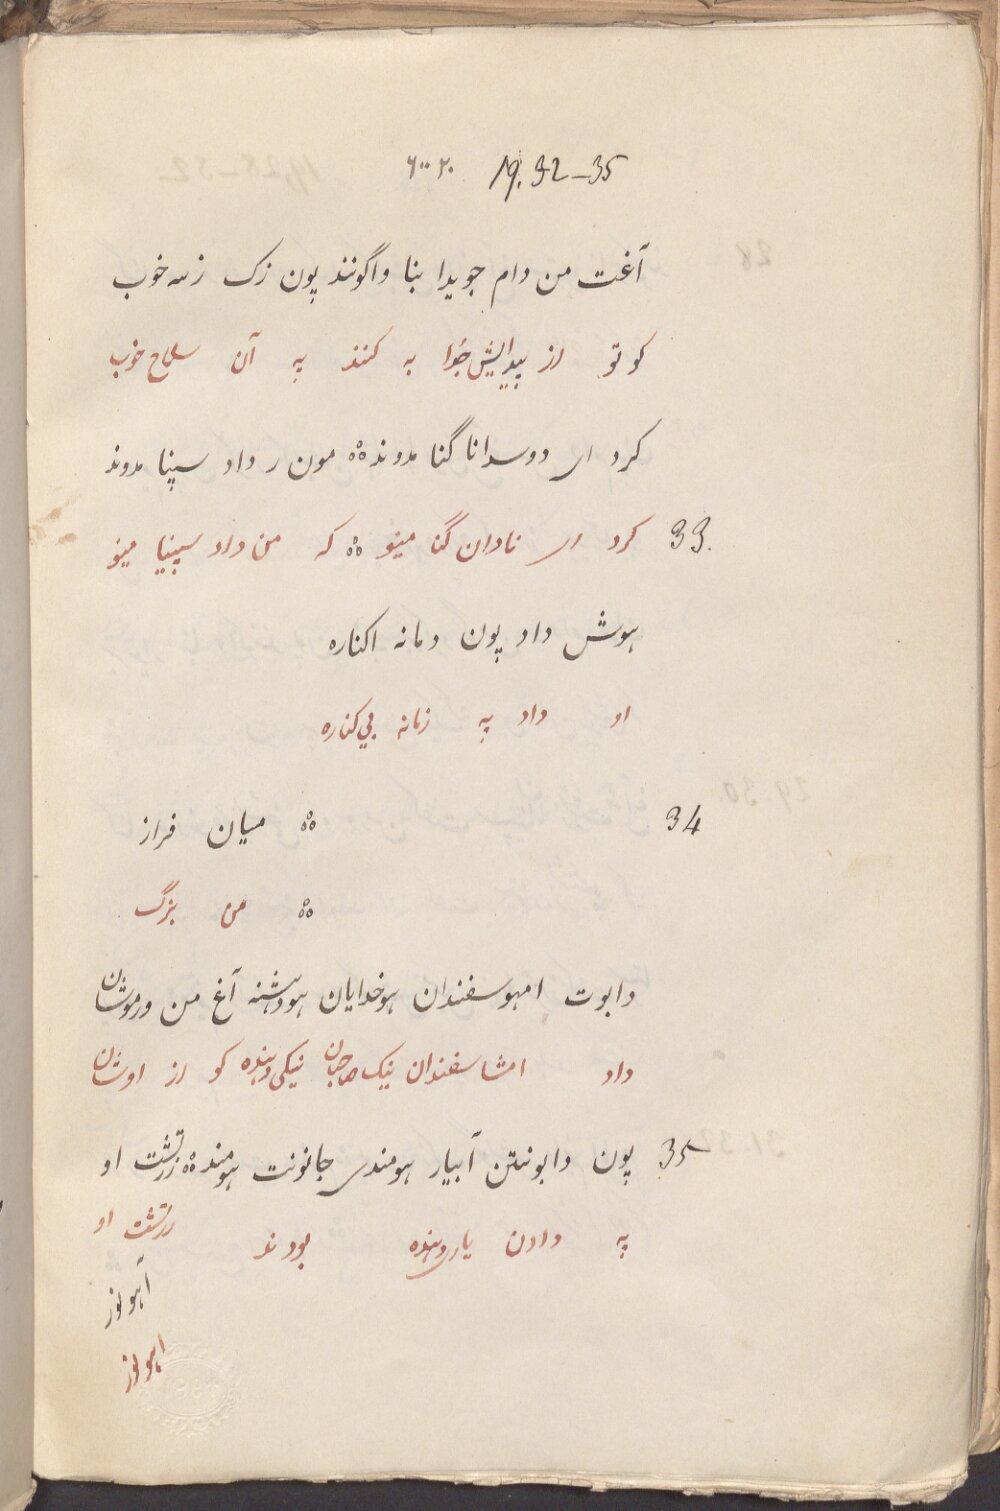 ۶۰۰۲۰ 19. 32-35
آغت من دام جویدا بنا واگونند پون زک زیه خوب
کو تو از پیدایش جوا به کنند به آن سلاح خوب
کرد ای دوسدانا گنا مدوند ‎°°° مون ر داد سپنا مدوند
33. کرد ای نادان گنا مینو °°° که من داد سپینا مینو
هوش داد پون دمانه اکناره
او داد په زمانه بی کناره
34 °°° میان فراز
°°° من بزرگ
دابوت امهوسفندان هوخدایان هودهشنه آغ من ورموشان
داد امشاسفندان نیک صاحبان نیکی دهنده کو از اوشان
35 پون دابونتن آبیار هومندی جانونت هومند °°° زرتشت او
په دادن یاری دهنده بودند زرتشت او
آهونور
اهونور